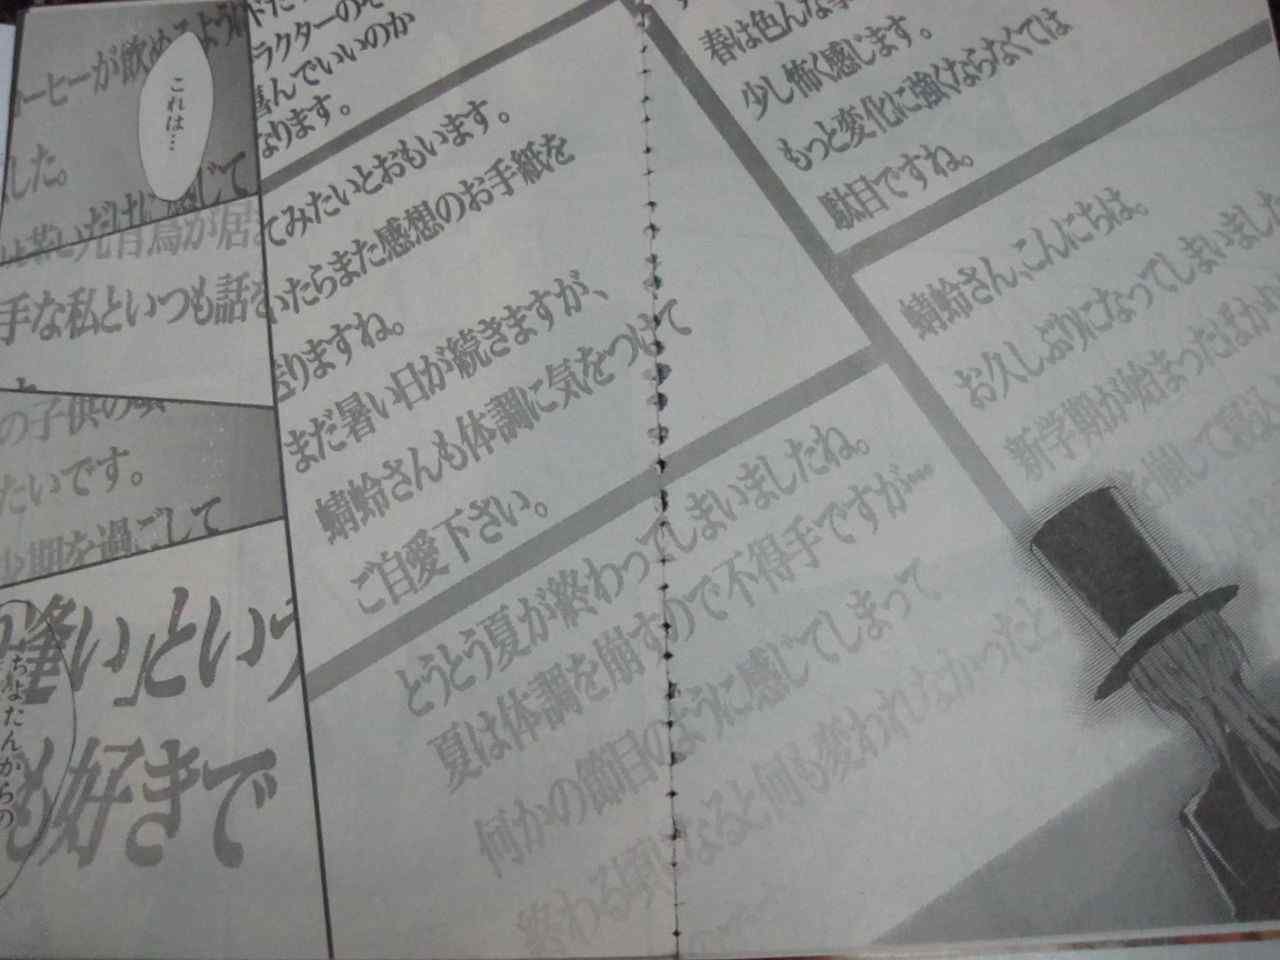 春は色んな
少し怖く感じます。
もっと変化に強くならなくては
駄目ですね。
蜻蛉さん、こんにちは。
お久しぶりになってしまいました
新学期が始まったばか
を崩して寝込
ラクターの
んでいいのか
なります。
てみたいとおもいます。
いたらまた感想のお手紙を
りますね。
まだ暑い日が続きますが、
蜻蛉さんも体調に気をつけて
ご自愛下さい。
とうとう夏が終わってしまいましたね。
夏は体調を崩すので不得手ですが…
何かの節目のように感じてしまって
終わる頃になると何も変われなかったと
ーヒーが飲めるよう
これは…
した。
じて
手な私といつも話を
の子供の
たいです。
少期を過ごして
逢い」という
も好きで
ちょたんからの